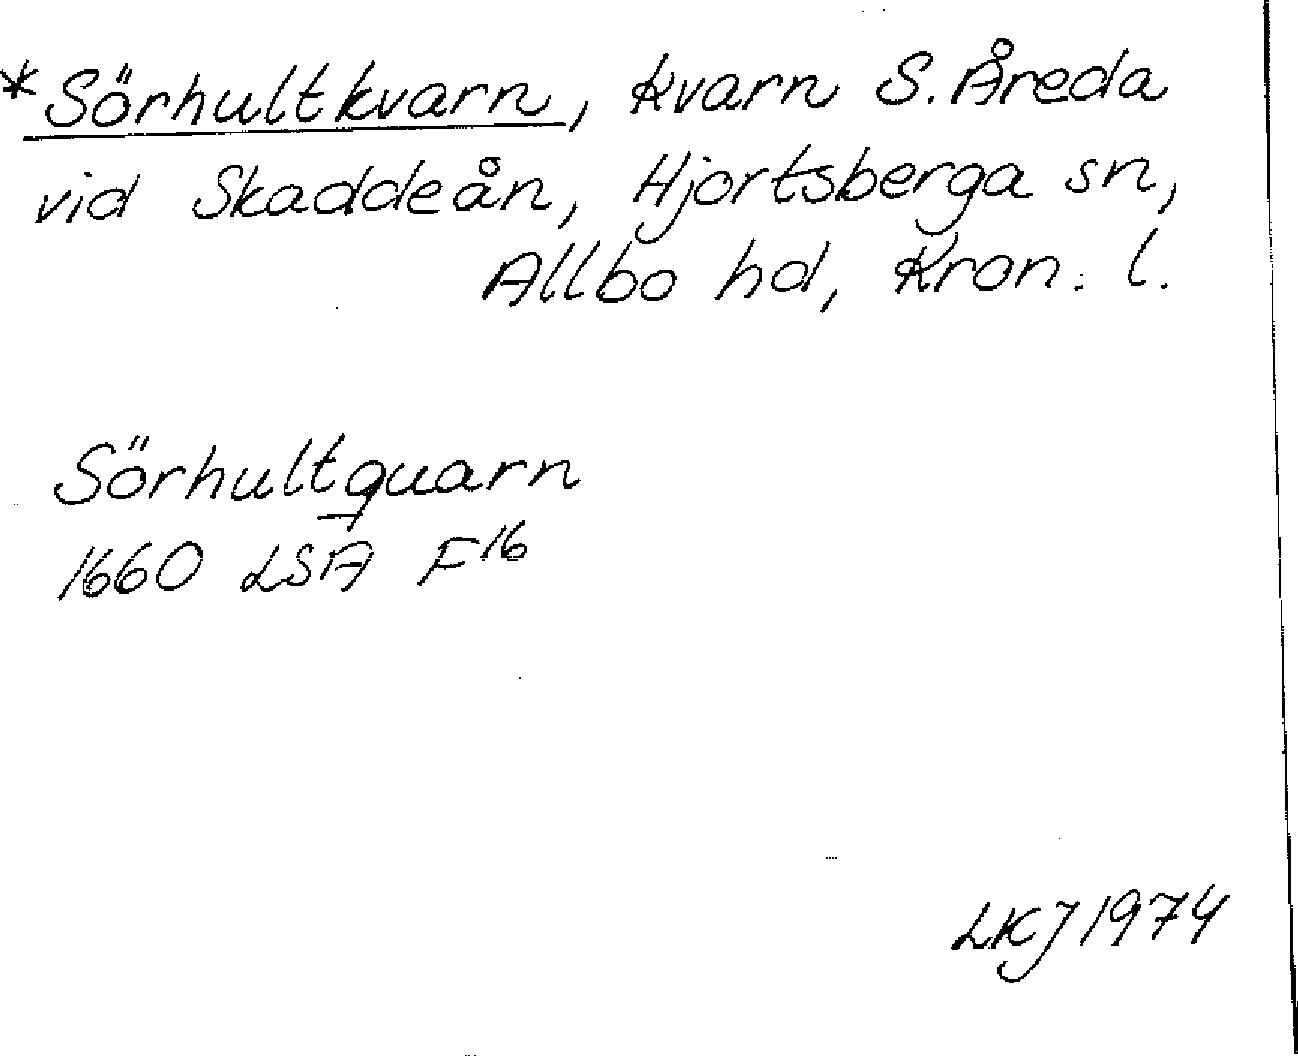 *Sörhultkvarn, kvarn S. Åreda
vid Skaddeån, Hjortsberga sn,
Allbo hd, Kron. l.
Sörhultquarn
1660 LSA F16
LKJ 1974